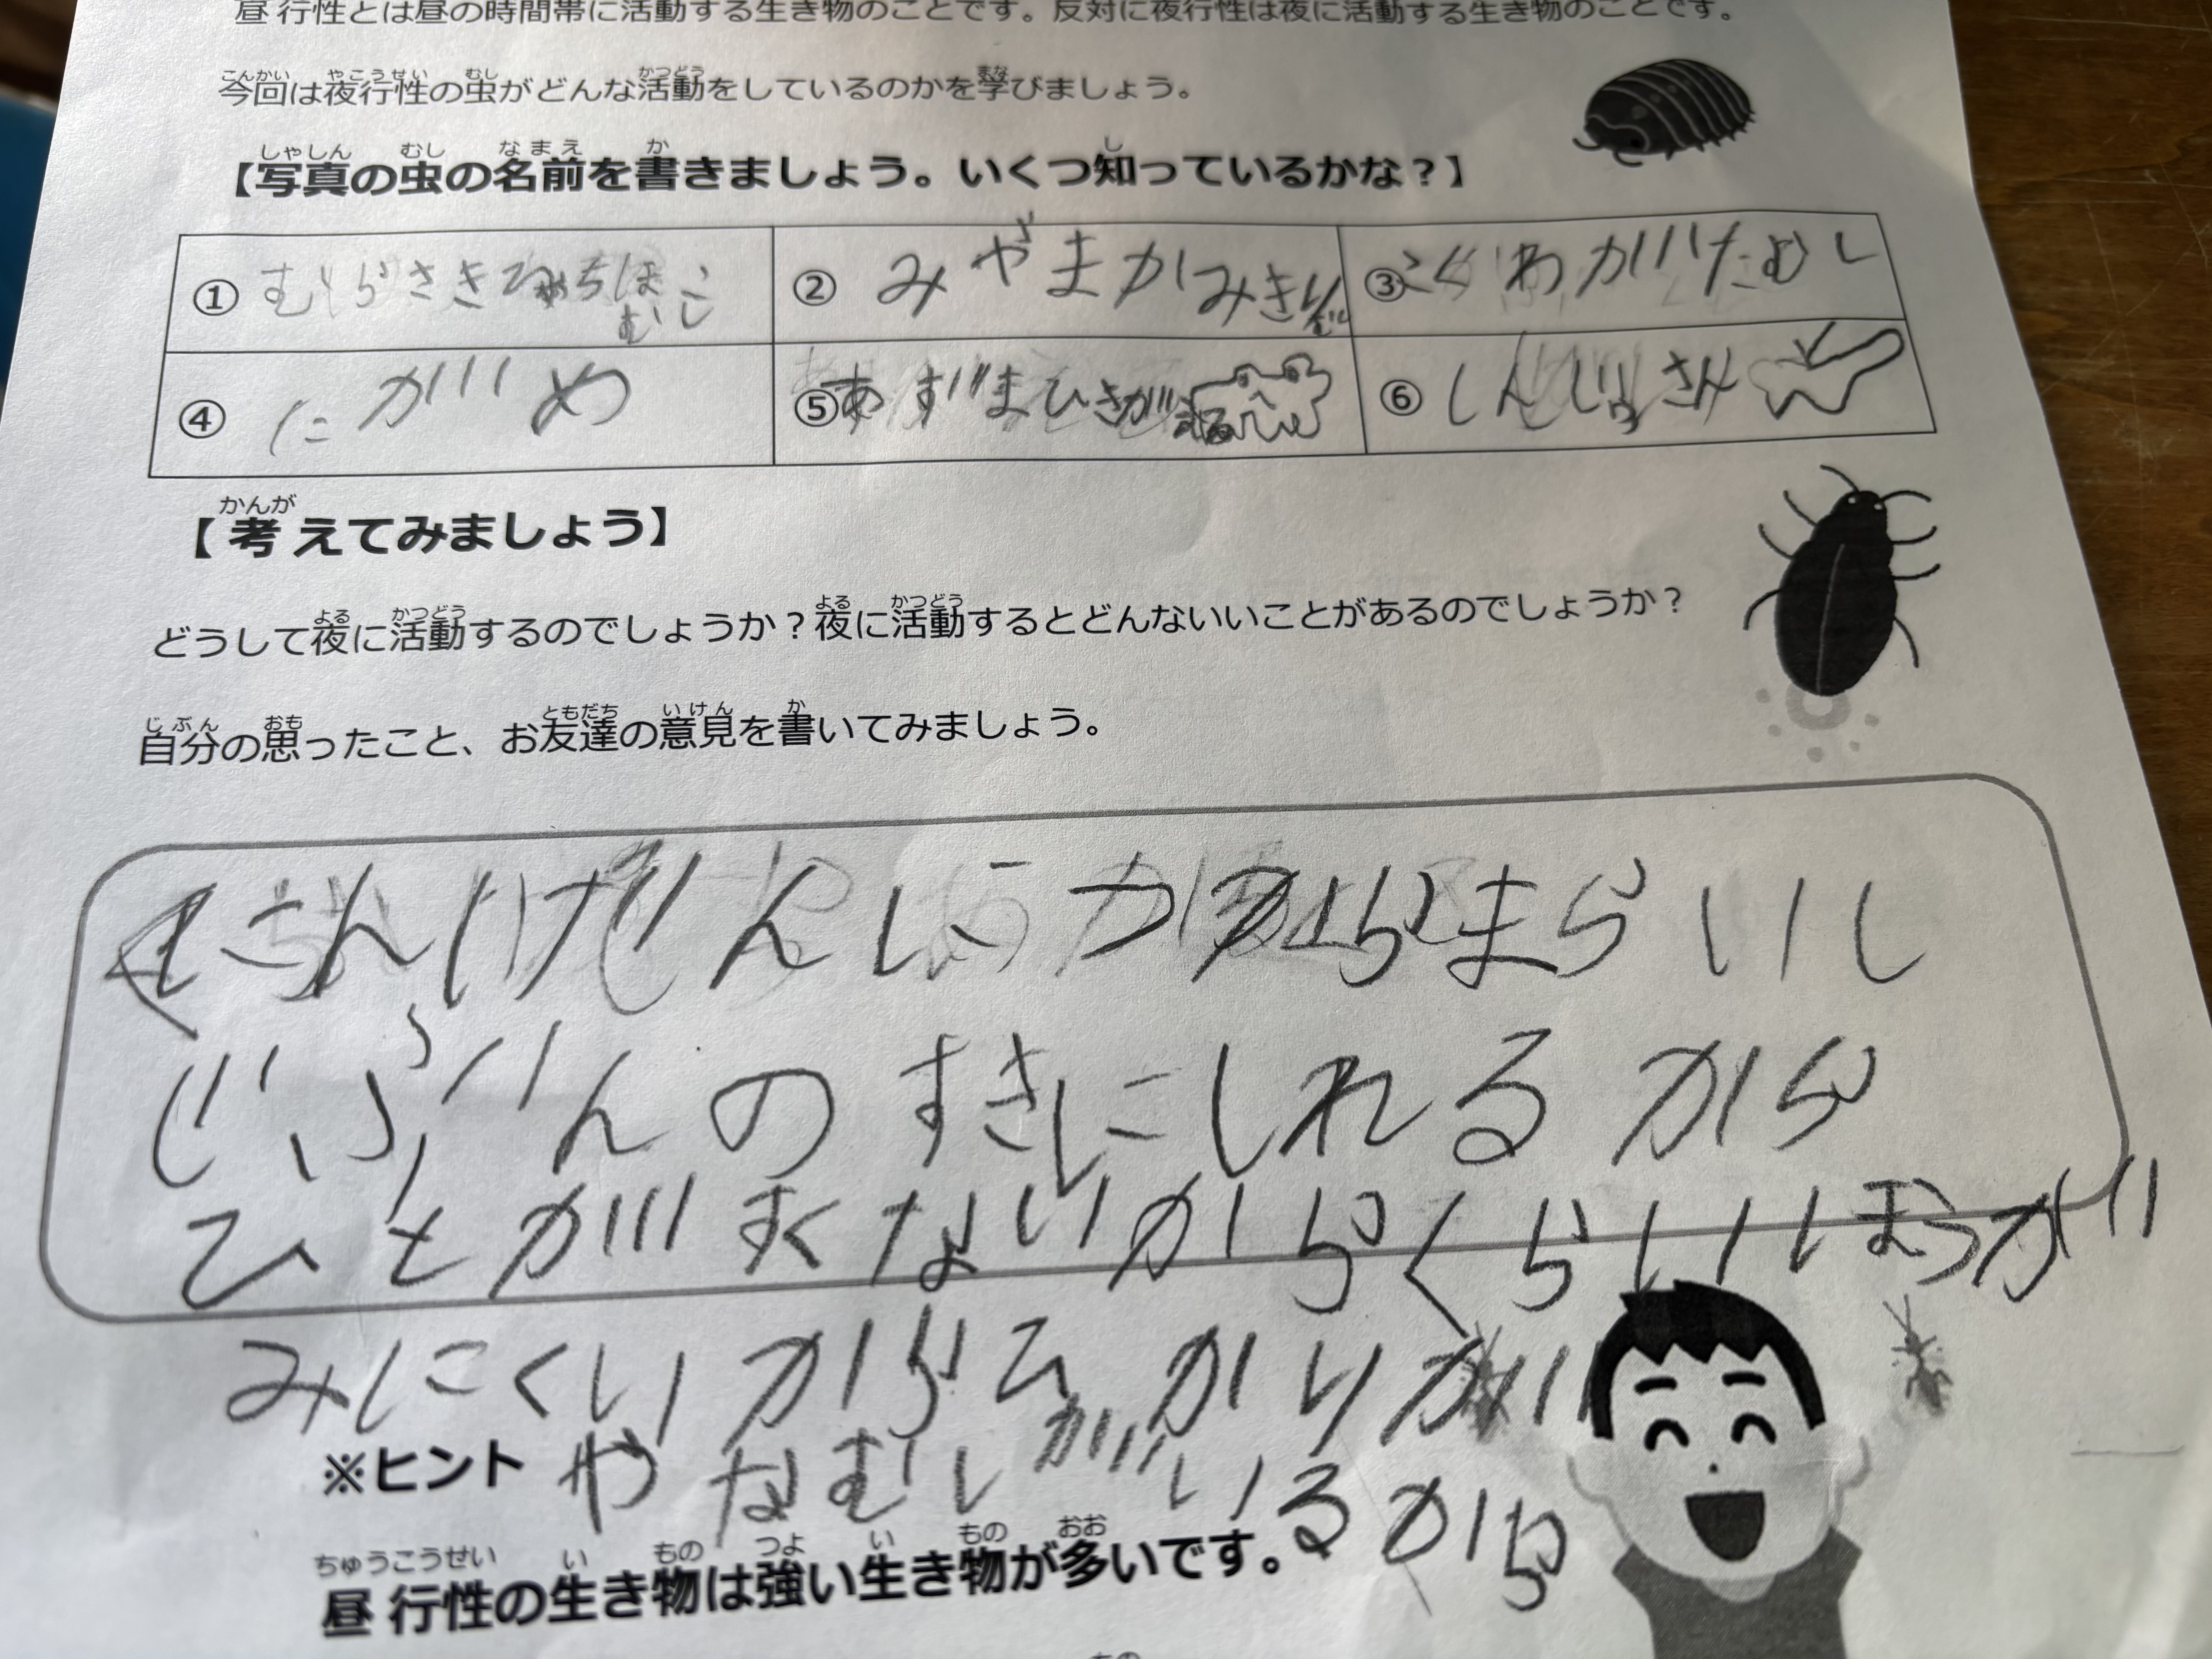 昼行性とは昼の時間帯に活動する生き物のことです。反対に夜行性は夜に活動する生き物のことです。
今回は夜行性の虫がどんな活動をしているのかを学びましょう。
【写真の虫の名前を書きましょう。いくつ知っているかな？】
① むらさき
② みやまかみきり
③ わがたむし
④ にがめ
⑤ あずまひきが
⑥ しんじゅさん
【考えてみましょう】
どうして夜に活動するのでしょうか？夜に活動するとどんないいことがあるのでしょうか？
自分の思ったこと、お友達の意見を書いてみましょう。
にんげんに つかまらいし
じぶんのすきにしれるから
ひとがすくないからくらいいほうが
みにくいからひかりが
やなむしがいるから
※ヒント
昼行性の生き物は強い生き物が多いです。